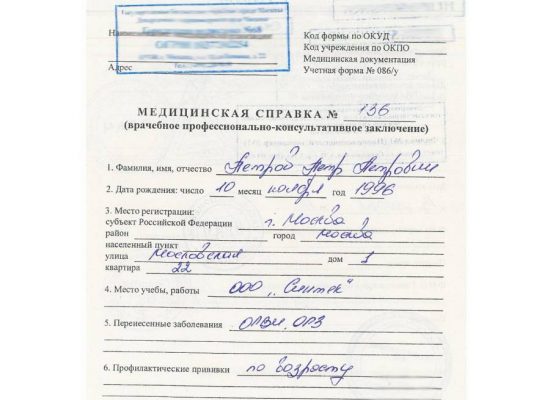 Код формы по ОКУД
Код учреждения по ОКПО
Медицинская документация
Учетная форма № 086/у
Адрес
МЕДИЦИНСКАЯ СПРАВКА № 136
(врачебное профессионально-консультативное заключение)
1. Фамилия, имя, отчество Петров Петр Петрович
2. Дата рождения: число 10 месяц ноября год 1996
3. Место регистрации:
субъект Российской Федерации г. Москва
район город Москва
населенный пункт
улица Московская дом 1
квартира 22
4. Место учебы, работы ООО „Синтек"
5. Перенесенные заболевания ОРВИ, ОРЗ
6. Профилактические прививки по возрасту